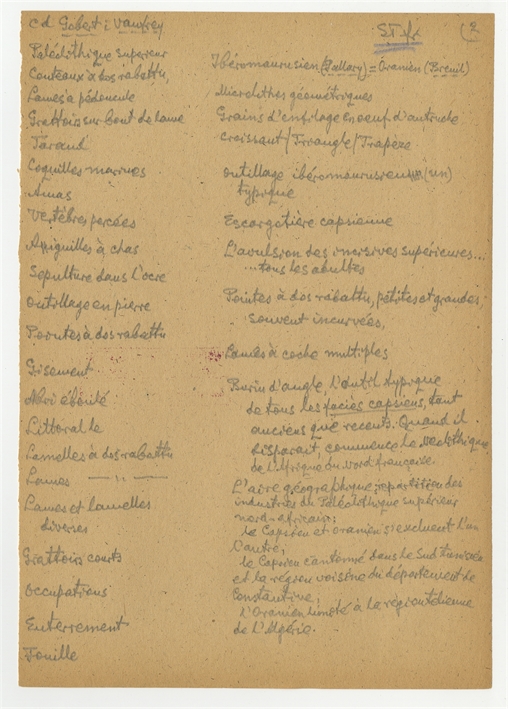 cd Gobert i Vaufrey
ST. fr. (2
Paléolithique supérieur
Couteaux à dos rabattu,
Lames à pédoncule
Grattoirs sur bout de lame
Taraud
Coquilles marines
Amas
Vertèbres percées
Aiguilles à chas
Sepulture dans l'ocre
Outillage en pierre
Pointes à dos rabattu
Gisement
Abri éboité
Littoral le
Lamelles à dos rabattu
Lames —— " ——
Lames et lamelles
diverses
Grattoirs courts
Occupations
Enterrement
Fouille
Ibéromaurusien (Pallary) = Oranien (Breuil)
Microlithes géométriques
Grains d'enfilage en oeuf d'autruche
croissant/Triangle/Trapèze
outillage ibéromaurusien (un)
typique
Escargotière capsienne
L'avulsion des incisives supérieures...
...tous les adultes
Pointes à dos rabattu, petites et grandes,
souvent incurvées,
Lames à coche multiples
Burin d'angle l'outil typique
de tous les faciès capsiens, tant
anciens que recents. Quand il
disparait, commence le Neolithique
de l'Afrique du Nord française.
L'aire géographique; repartition des
industries du Paléolithique supérieur
nord-africain:
le Capsien et oranien s'excluent l'un
l'autre;
le Capsien cantonné dans le Sud tunisien
et la région voisine du département de
Constantine;
l'Oranien limité à la région tellienne
de l'Algérie.